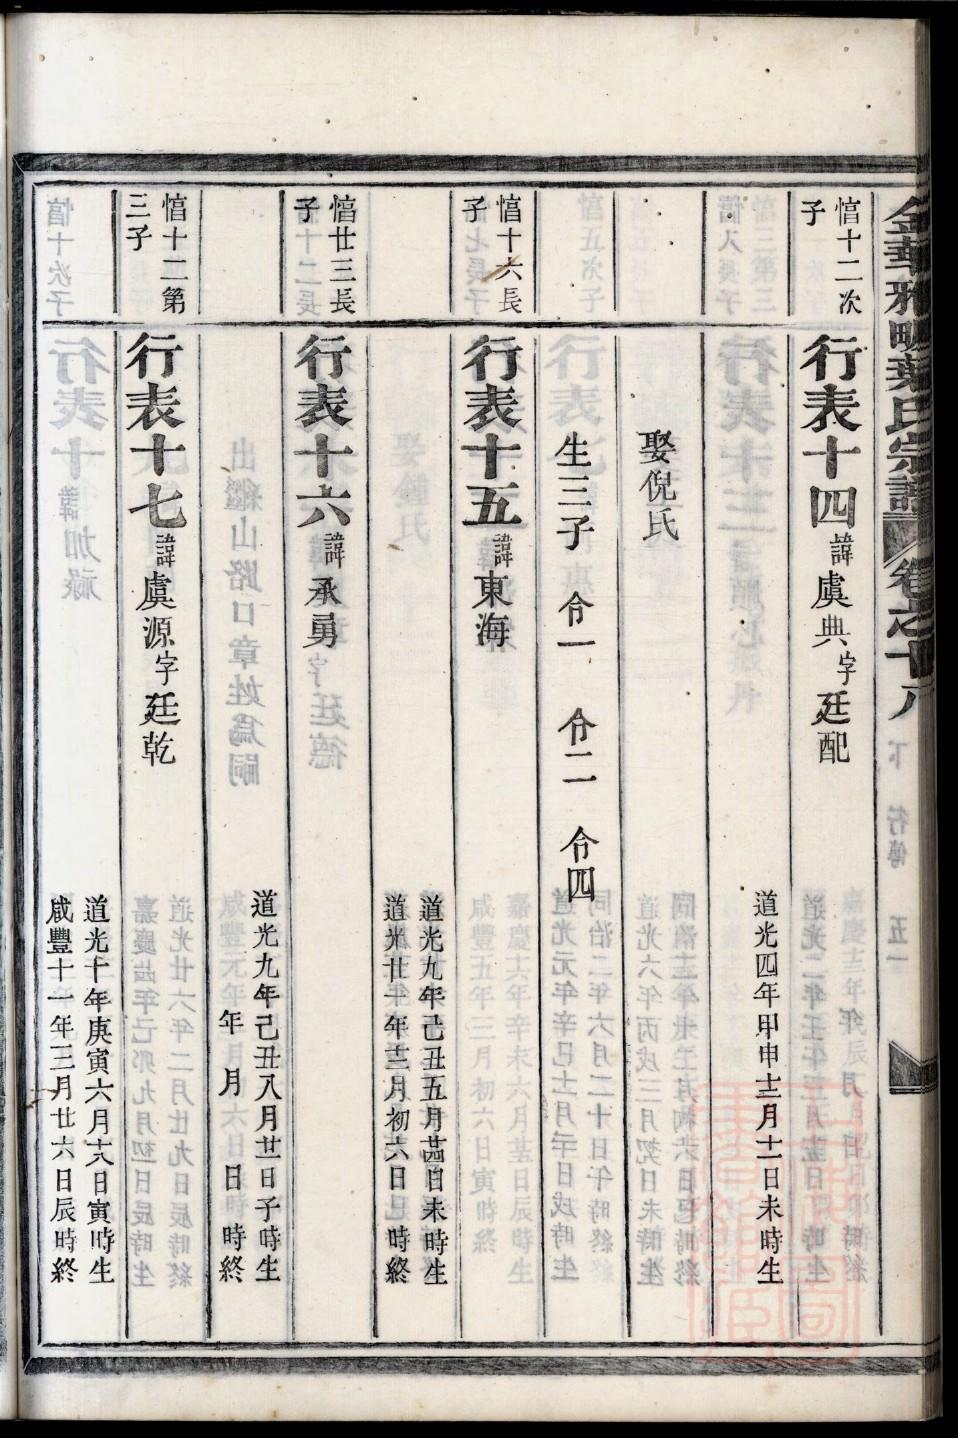 金華雅畈葉氏宗譜 卷之十八
愭十二次
子
行表十四 諱虞典 字廷配
道光四年甲申十二月十一日未時生
娶倪氏
生三子 令一 令二 令四
愭十六長
子
行表十五 諱東海
道光九年己丑五月廿四日未時生
道光廿一年十二月初六日 時終
愭廿三長
子
行表十六 諱承勇
道光九年己丑八月廿一日子時生
年 月 日 時終
愭十二第
三子
行表十七 諱虞源 字廷乾
道光十年庚寅六月十八日寅時生
咸豐十一年三月廿六日辰時終